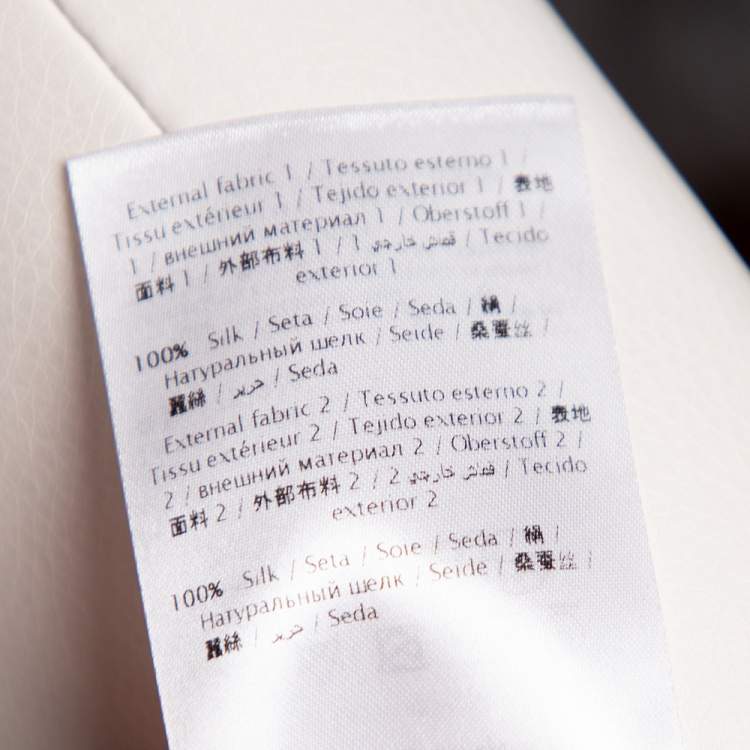 External fabric 1 / Tessuto esterno 1 /
Tissu extérieur 1 / Tejido exterior 1 / 表地
1 / внешний материал 1 / Oberstoff 1 /
面料 1 / 外部布料 1 / 1 قماش خارجي / Tecido
exterior 1
100% Silk / Seta / Soie / Seda / 絹 /
Натуральный шелк / Seide / 桑蚕丝 /
蠶絲 / حرير / Seda
External fabric 2 / Tessuto esterno 2 /
Tissu extérieur 2 / Tejido exterior 2 / 表地
2 / внешний материал 2 / Oberstoff 2 /
面料 2 / 外部布料 2 / 2 قماش خارجي / Tecido
exterior 2
100% Silk / Seta / Soie / Seda / 絹 /
Натуральный шелк / Seide / 桑蚕丝 /
蠶絲 / حرير / Seda